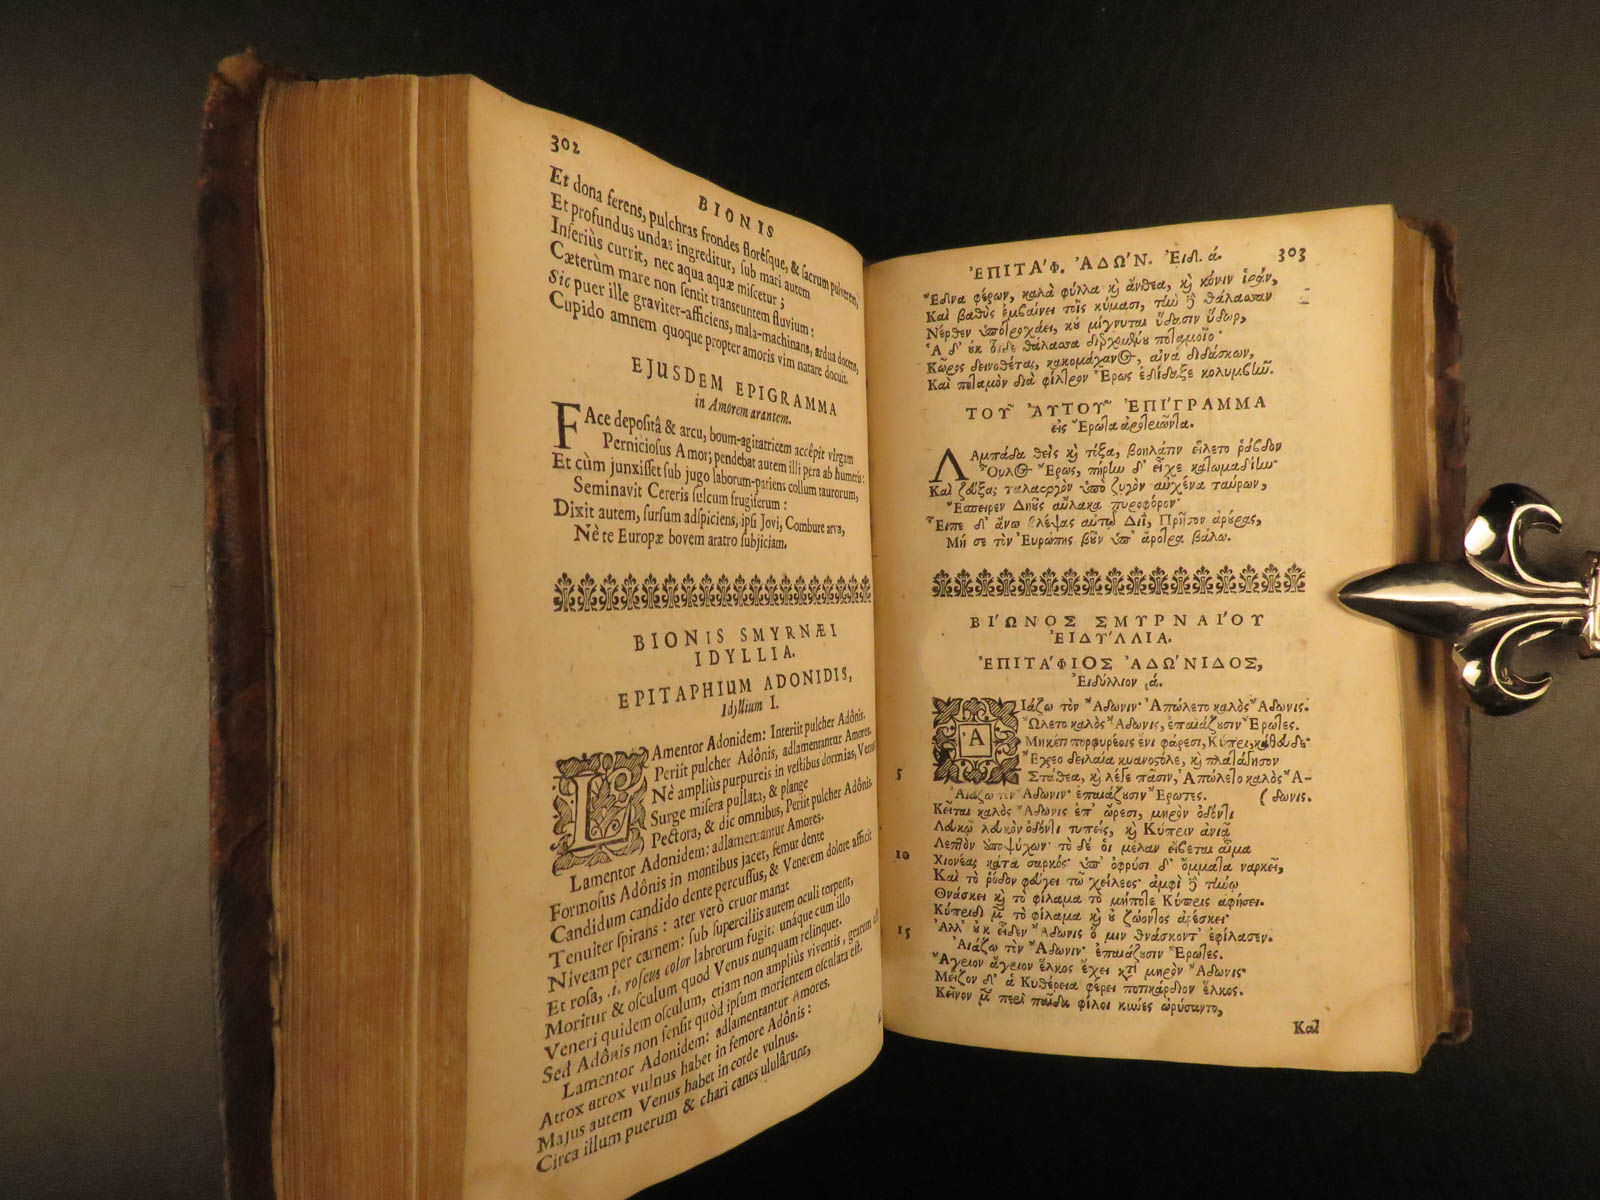 302
BIONIS
Et dona ferens, pulchras frondes florésque, & sacrum pulverem;
Et profundus undas ingreditur, sub mari autem
Inferiùs currit, nec aqua aquæ miscetur;
Cæterùm mare non sentit transeuntem fluvium:
Sic puer ille graviter-afficiens, mala-machinans, ardua docens,
Cupido amnem quoque propter amoris vim natare docuit.
EJUSDEM EPIGRAMMA
in Amorem arantem.
FAce depositâ & arcu, boum-agitatricem accêpit virgam
Perniciosus Amor; pendebat autem illi pera ab humeris:
Et cùm junxisset sub jugo laborum-patiens collum taurorum,
Seminavit Cereris sulcum frugiferum:
Dixit autem, sursum adspiciens, ipsi Jovi, Combure arva,
Nè te Europæ bovem aratro subjiciam.
BIONIS SMYRNÆI
IDYLLIA.
EPITAPHIUM ADONIDIS,
Idyllium I.
LAmentor Adonidem: Interiit pulcher Adônis.
Periit pulcher Adônis, adlamentantur Amores.
Nè ampliùs purpureis in vestibus dormias, Venus
Surge misera pullata, & plange
Pectora, & dic omnibus, Periit pulcher Adônis.
Lamentor Adonidem: adlamentantur Amores.
Formosus Adônis in montibus jacet, femur dente
Candidum candido dente percussus, & Venerem dolore afficit
Tenuiter spirans: ater verò cruor manat
Niveam per carnem: sub superciliis autem oculi torpent,
Et rosa, .i. roseus color labrorum fugit: unáque cum illo
Moritur & osculum quod Venus nunquam relinquet.
Veneri quidem osculum, etiam non ampliùs viventis, gratum est
Sed Adônis non sensit quòd ipsum morientem osculata est.
Lamentor Adonidem: adlamentantur Amores.
Atrox atrox vulnus habet in femore Adônis:
Majus autem Venus habet in corde vulnus.
Circa illum puerum & chari canes ululârunt,
ἘΠΙΤΑ΄Φ. ἈΔΩ΄Ν. Εἰδ. ά. 303
Ἕδνα φέρων, καλὰ φύλλα κὴ ἄνθεα, κὴ κόνιν ἱράν,
Καὶ βαθὺς ἐμβαίνει τοῖς κύμασι, τὰν δὲ θάλασσαν
Νέρθεν ὑποτροχάει, κοὐ μίγνυται ὕδασιν ὕδωρ,
Ἁ δ' οὐκ οἶδε θάλασσα διερχομένου ποταμοῖο·
Κῶρος δεινοθέτας, κακομάχανος, αἰνὰ διδάσκων,
Καὶ ποταμὸν διὰ φίλτρον Ἔρως ἐδίδαξε κολυμβῆν.
ΤΟΥ͂ ἈΥΤΟΥ͂ ἘΠΙ΄ΓΡΑΜΜΑ
εἰς Ἔρωτα ἀροτριῶντα.
ΛΑμπάδα θεὶς κὴ τόξα, βοηλάτιν εἵλετο ῥάβδον
Οὖλος Ἔρως, πήρην δ' εἶχε κατωμαδίην·
Καὶ ζεύξας ταλαεργὸν ὑπὸ ζυγὸν αὐχένα ταύρων,
Ἔσπειρεν Δηοῦς αὔλακα πυροφόρον·
Εἶπε δ' ἄνω βλέψας αὐτῷ Διῒ, Πρῆσον ἀρούρας,
Μή σε τὸν Εὐρώπης βοῦν ὑπ' ἄροτρα βάλω.
ΒΙ΄ΩΝΟΣ ΣΜΥΡΝΑΙ΄ΟΥ
ἘΙΔΥ΄ΛΛΙΑ.
ἘΠΙΤΑ΄ΦΙΟΣ ἈΔΩ΄ΝΙΔΟΣ,
Εἰδύλλιον ά.
ἈΙάζω τὸν Ἄδωνιν· Ἀπώλετο καλὸς Ἄδωνις.
Ὤλετο καλὸς Ἄδωνις, ἐπαιάζουσιν Ἔρωτες.
Μηκέτι πορφυρέοις ἐνὶ φάρεσι, Κύπρι, κάθευδε·
Ἔγρεο δειλαία κυανοστόλε, κὴ πλατάγησον
5 Στάθεα, κὴ λέγε πᾶσιν, Ἀπώλετο καλὸς Ἄ-
Αἰάζω τὸν Ἄδωνιν· ἐπαιάζουσιν Ἔρωτες. ( δωνις.
Κεῖται καλὸς Ἄδωνις ἐπ' ὤρεσι, μηρὸν ὀδόντι
Λευκῷ λευκὸν ὀδόντι τυπείς, κὴ Κύπριν ἀνιᾷ
Λεπτὸν ἀποψύχων· τὸ δέ οἱ μέλαν εἴβεται αἷμα
10 Χιονέας κατὰ σαρκός· ὑπ' ὀφρύσι δ' ὄμματα ναρκεῖ,
Καὶ τὸ ῥόδον φεύγει τῶ χείλεος· ἀμφὶ δὲ τήνῳ
Θνάσκει κὴ τὸ φίλαμα τὸ μήποτε Κύπρις ἀφήσει.
Κύπριδι μὲν τὸ φίλαμα κὴ οὐ ζώοντος ἀρέσκει·
Ἀλλ' οὐκ εἶδεν Ἄδωνις ὅ μιν θνάσκοντ' ἐφίλασεν.
15 Αἰάζω τὸν Ἄδωνιν· ἐπαιάζουσιν Ἔρωτες.
Ἄγριον ἄγριον ἕλκος ἔχει κατὰ μηρὸν Ἄδωνις·
Μεῖζον δ' ἁ Κυθέρεια φέρει ποτικάρδιον ἕλκος.
Κεῖνον μὲν περὶ παῖδα φίλοι κύνες ὠρύσαντο,
Καὶ